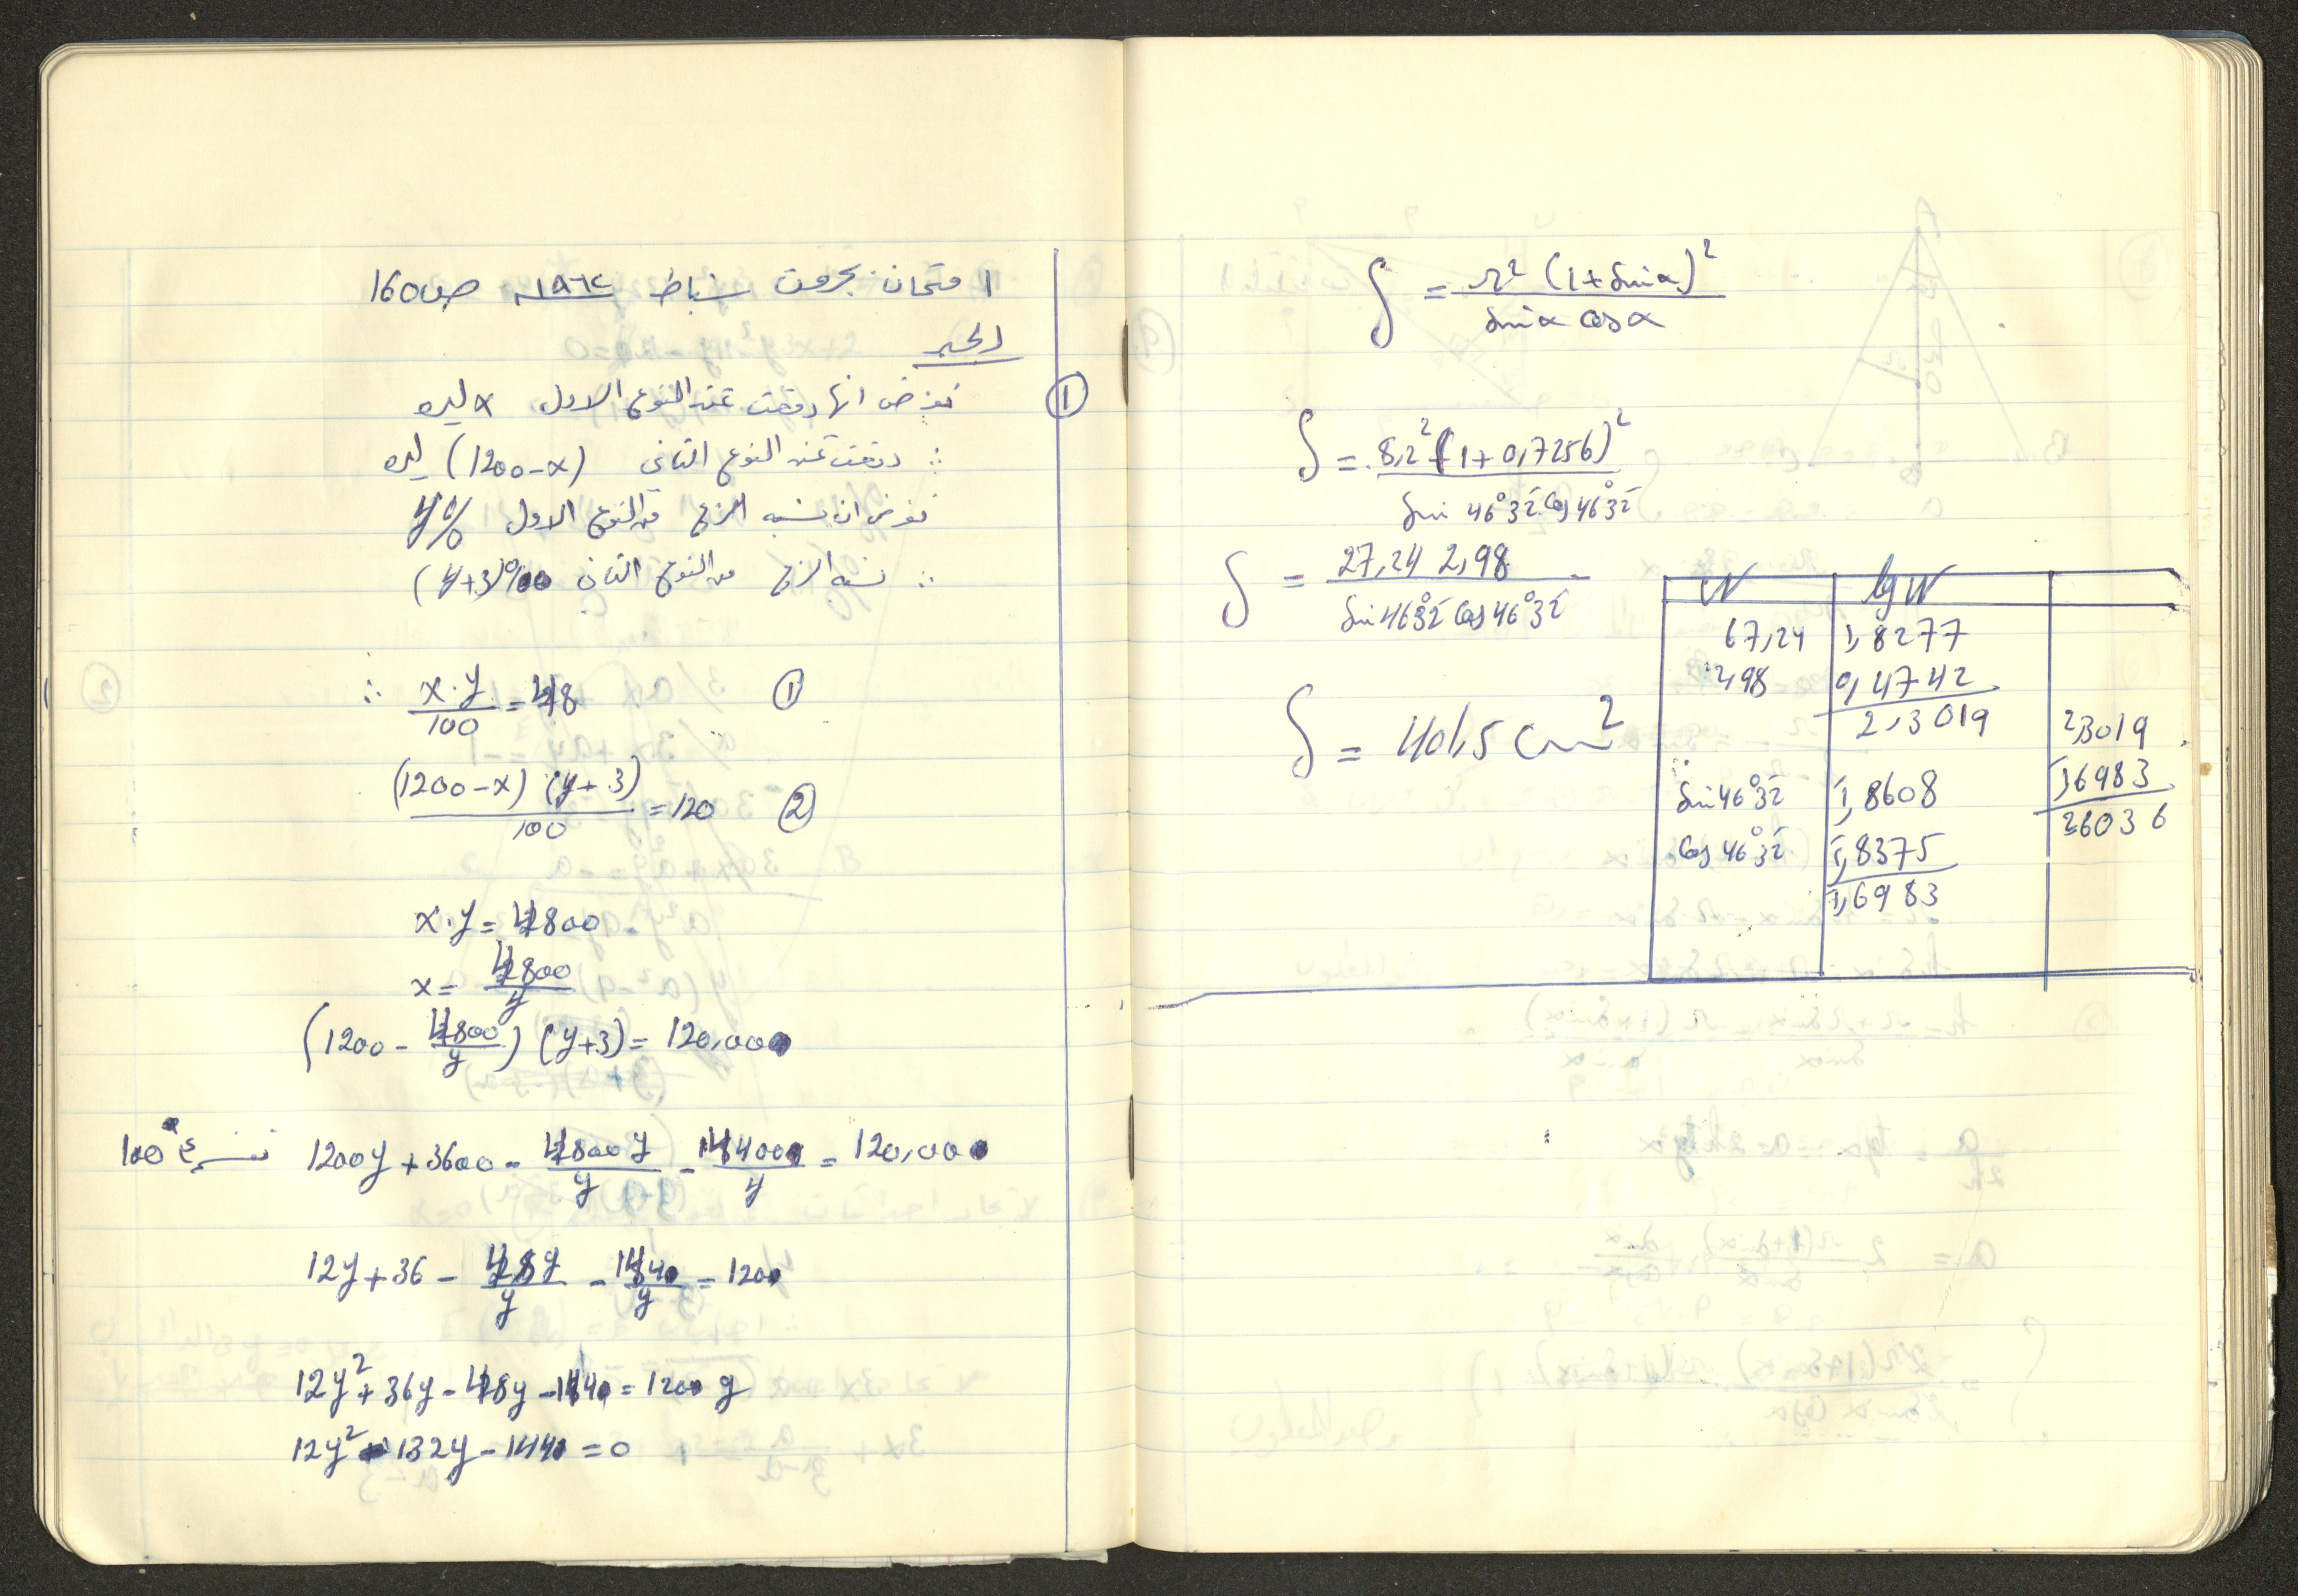 امتحان بجروت شباط ١٩٦٢ ص 160
الجبر
① نفرض انها دفعت عند النوع الاول x ليره
∴ دفعت عند النوع الثاني (1200-x) ليره
نفرض ان نسبه الربح من النوع الاول y%
∴ نسبه الربح من النوع الثاني (y+3)%
∴ x·y/100 = 48 ①
(1200-x)(y+3)/100 = 120 ②
x·y = 4800
x = 4800/y
(1200 - 4800/y) (y+3) = 12000
1200y + 3600 - 4800y/y - 14400/y = 12000 100
12y + 36 - 48y/y - 144/y = 120
12y² + 36y - 48y - 144 = 120 y
12y² - 132y - 144 = 0
S = r² (1+sinα)² / sinα cosα
S = 8,2² (1+0,7256)² / sin 46°32' cos 46°32'
S = 27,24 2,98 / sin 46°32' cos 46°32'
S = 401,5 cm²
N lgN
67,24 1,8277
2,98 0,4742
2,3019 2,3019
sin 46°32' 1̄,8608 1̄,6983
cos 46°32' 1̄,8375 2,6036
1̄,6983